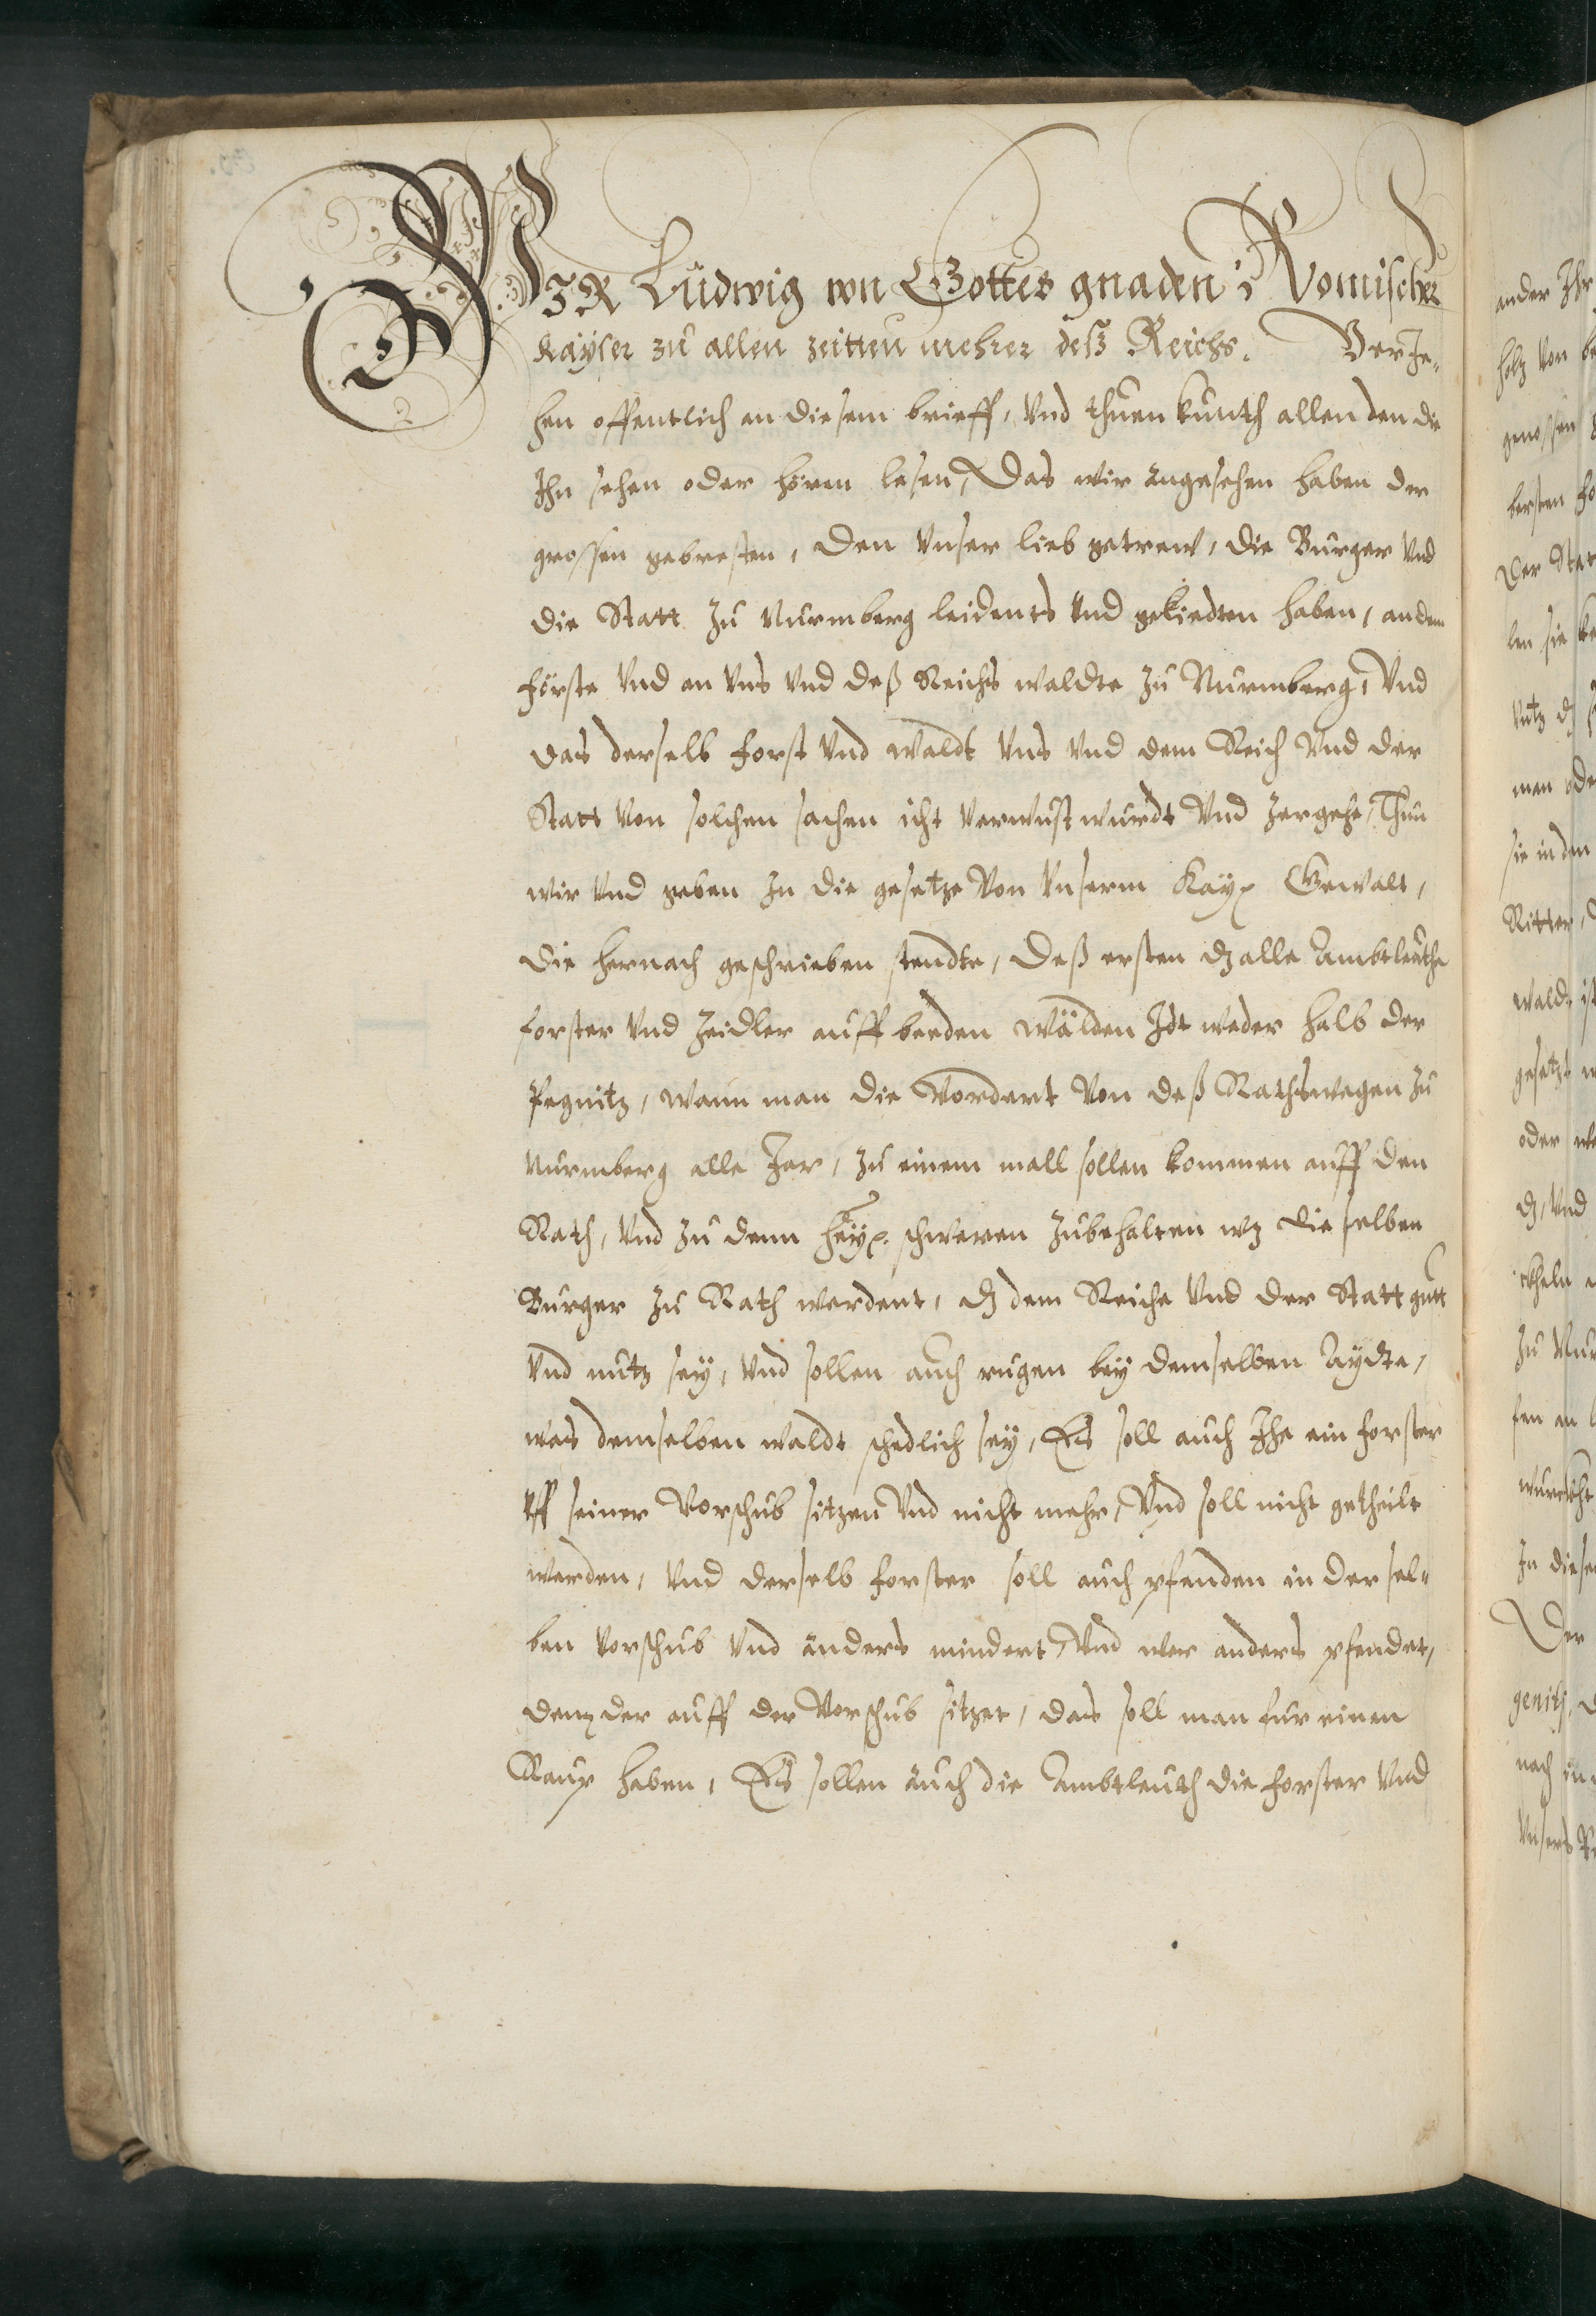 WIR Ludwig von Gottes gnaden Romischer
Kayser zu allen zeitten mehrer deß Reichs. VerJe-
hen offentlich an diesem brieff, Vnd thuen kunth allen den die
Ihn sehen oder hören lesen, Das wir angesehen haben der
grossen gebresten, den Vnser lieb getrew, die Burger Vnd
die Statt zu Nurmberg leidents Vnd geliedten haben, an dem
förste Vnd an Vns Vnd deß Reichs waldte zu Nurmberg, Vnd
das derselb forst Vnd waldt Vns Vnd dem Reich Vnd der
Statt Von solchen sachen icht verwust wurdt Vnd zergehe, Thun
wir Vnd geben In die gesetze Von Vnserm Kay: Gewalt,
die hernach geschrieben stendte, deß ersten dz alle Ambtleuthe
forster Vnd Zeidler auff beeden wälden Idt weder halb der
Pegnitz, wann man die Vordert Von deß Raths wegen zu
Nurmberg alle Jar, zu einem mall sollen kommen auff den
Rath, Vnd zu denn hey: schweren zubehalten wz dieselben
Burger zu Rath werdent, dz dem Reiche Vnd der Statt gutt
Vnd nutz sey, Vnd sollen auch rugen bey demselben Aydte,
was demselben waldt schedlich sey, Es soll auch Ihe ein forster
Vff seiner Vorschub sitzen Vnd nicht mehr, Vnd soll nicht getheilt
werden, Vnd derselb forster soll auch pfenden in der sel-
ben Vorschub Vnd anders niendert, Vnd wer anders pfendet,
denn der auff der Vorschub sitzet, das soll man fur einen
Raup haben, Es sollen auch die Ambtleuth die forster Vnd